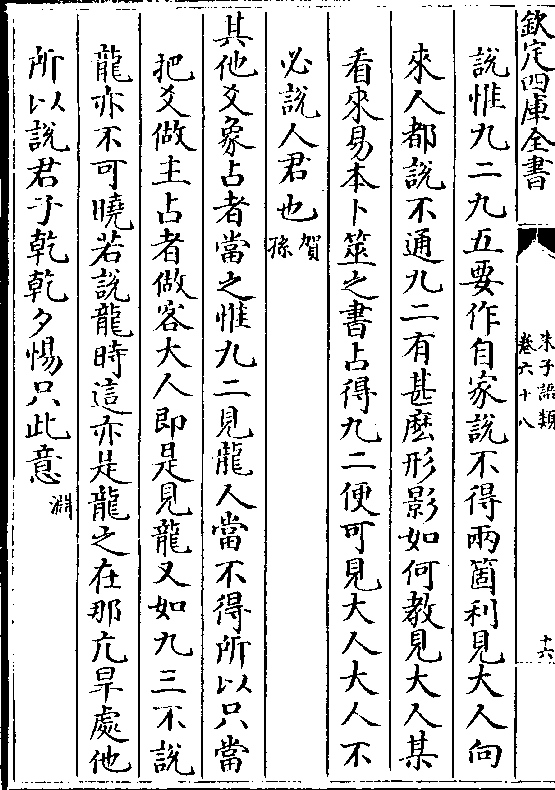 欽定四庫全書
朱子語類
卷六十八
十六
說惟九二九五要作自家說不得兩箇利見大人向
來人都說不通九二有甚麽形影如何教見大人某
看來易本卜筮之書占得九二便可見大人大人不
必說人君也賀孫
其他爻象占者當之惟九二見龍人當不得所以只當
把爻做主占者做客大人即是見龍又如九三不說
龍亦不可曉若說龍時這亦是龍之在那亢旱處他
所以說君子乾乾夕惕只此意淵